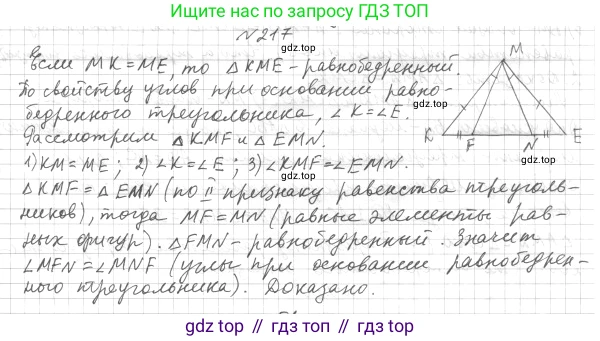 Ищите нас по запросу ГДЗ ТОП
№217
Если MK=ME, то △KME – равнобедренный.
По свойству углов при основании равно-
бедренного треугольника, ∠K=∠E.
Рассмотрим △KMF и △EMN.
1) KM=ME; 2) ∠K=∠E; 3) ∠KMF=∠EMN.
△KMF=△EMN (по II признаку равенства треуголь-
ников), тогда MF=MN (равные элементы рав-
ных фигур). △FMN – равнобедренный. Значит
∠MFN=∠MNF (углы при основании равнобедрен-
ного треугольника). Доказано.
M
K F N E
gdz.top
gdz.top
gdz.top
gdz.top
gdz.top
gdz.top
gdz.top
gdz top // гдз топ // gdz top // гдз топ // gdz top